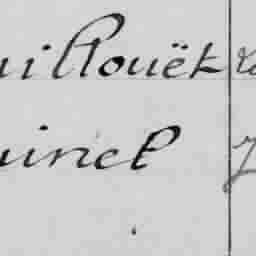 uillouët
uinel